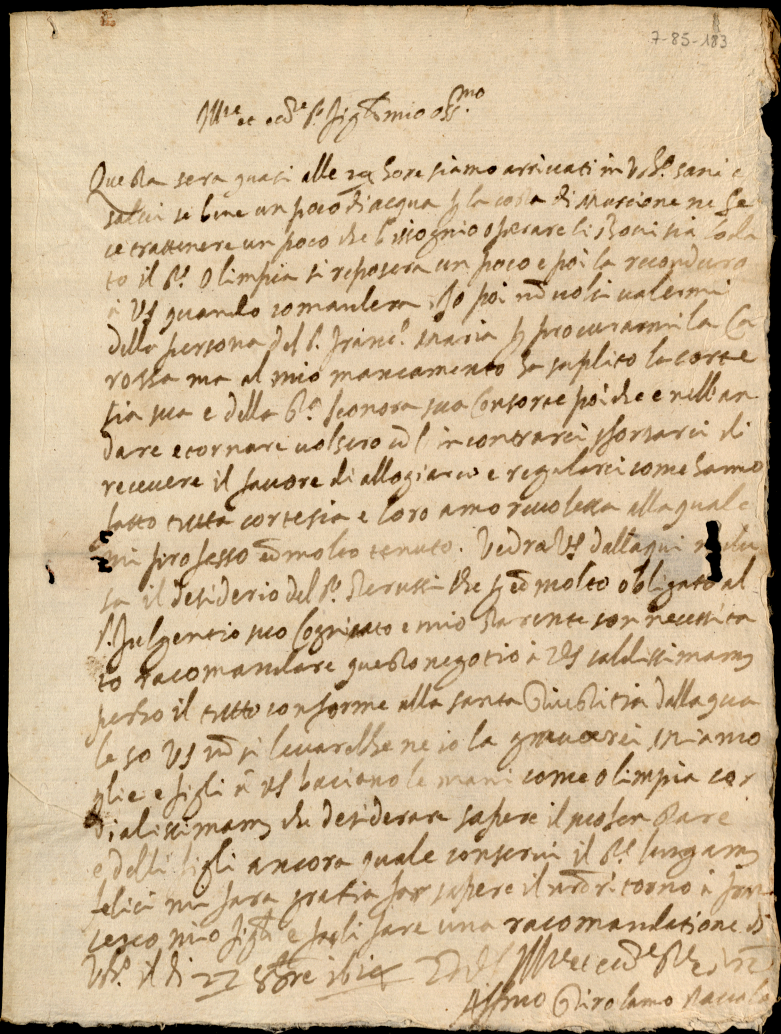 7-85-183
Ill.re et ecc.e S.r Sig.r mio oss.mo
Questa sera quasi alle hore siamo arrivati in sani e
salvi se bene un poco di acqua p la costa di ne fe
ce trattenere un poco che bisognio operare li Bovi sia loda
to il S.r Olimpia si reposera un poco e poi la recondurro
à VS quando comandera, Io poi nō volsi valermi
della persona del S. Franc.o Maria p procurarmi la Ca
rossa ma al mio mancamento ha suplito la corte
sia sua e della S.ra Leonora sua Consorte poiche e nell an
dare e tornare volsero incontrarci sforzarci di
recevere il favore di allogiarci e regalarci come hanno
fatto tutta cortesia e loro amorevolezza alla quale
mi professo molto tenuto. Vedra VS dalla qui
sa il desiderio del S. Perussi che molto obligato al
S. Fulgentio suo Cogniato e mio Parente son necessita
to racomandare questo negotio à VS caldissimam
perho il tutto conforme alla santa Giustitia dalla qua
le so VS nō si levarebbe ne io la graverei, mia mo
glie e figli à VS baciano le mani come Olimpia cor
dialissimam che desiderara sapere il
e delli figli ancora quale conservi il S.r lungam
felici mi fara gratia far sapere il ritorno à Fran
cesco mio figl.o e fagli fare una racomandatione di
il di 22 8bre
Di VS Ill.re et ecc.e
Aff.mo Girolamo